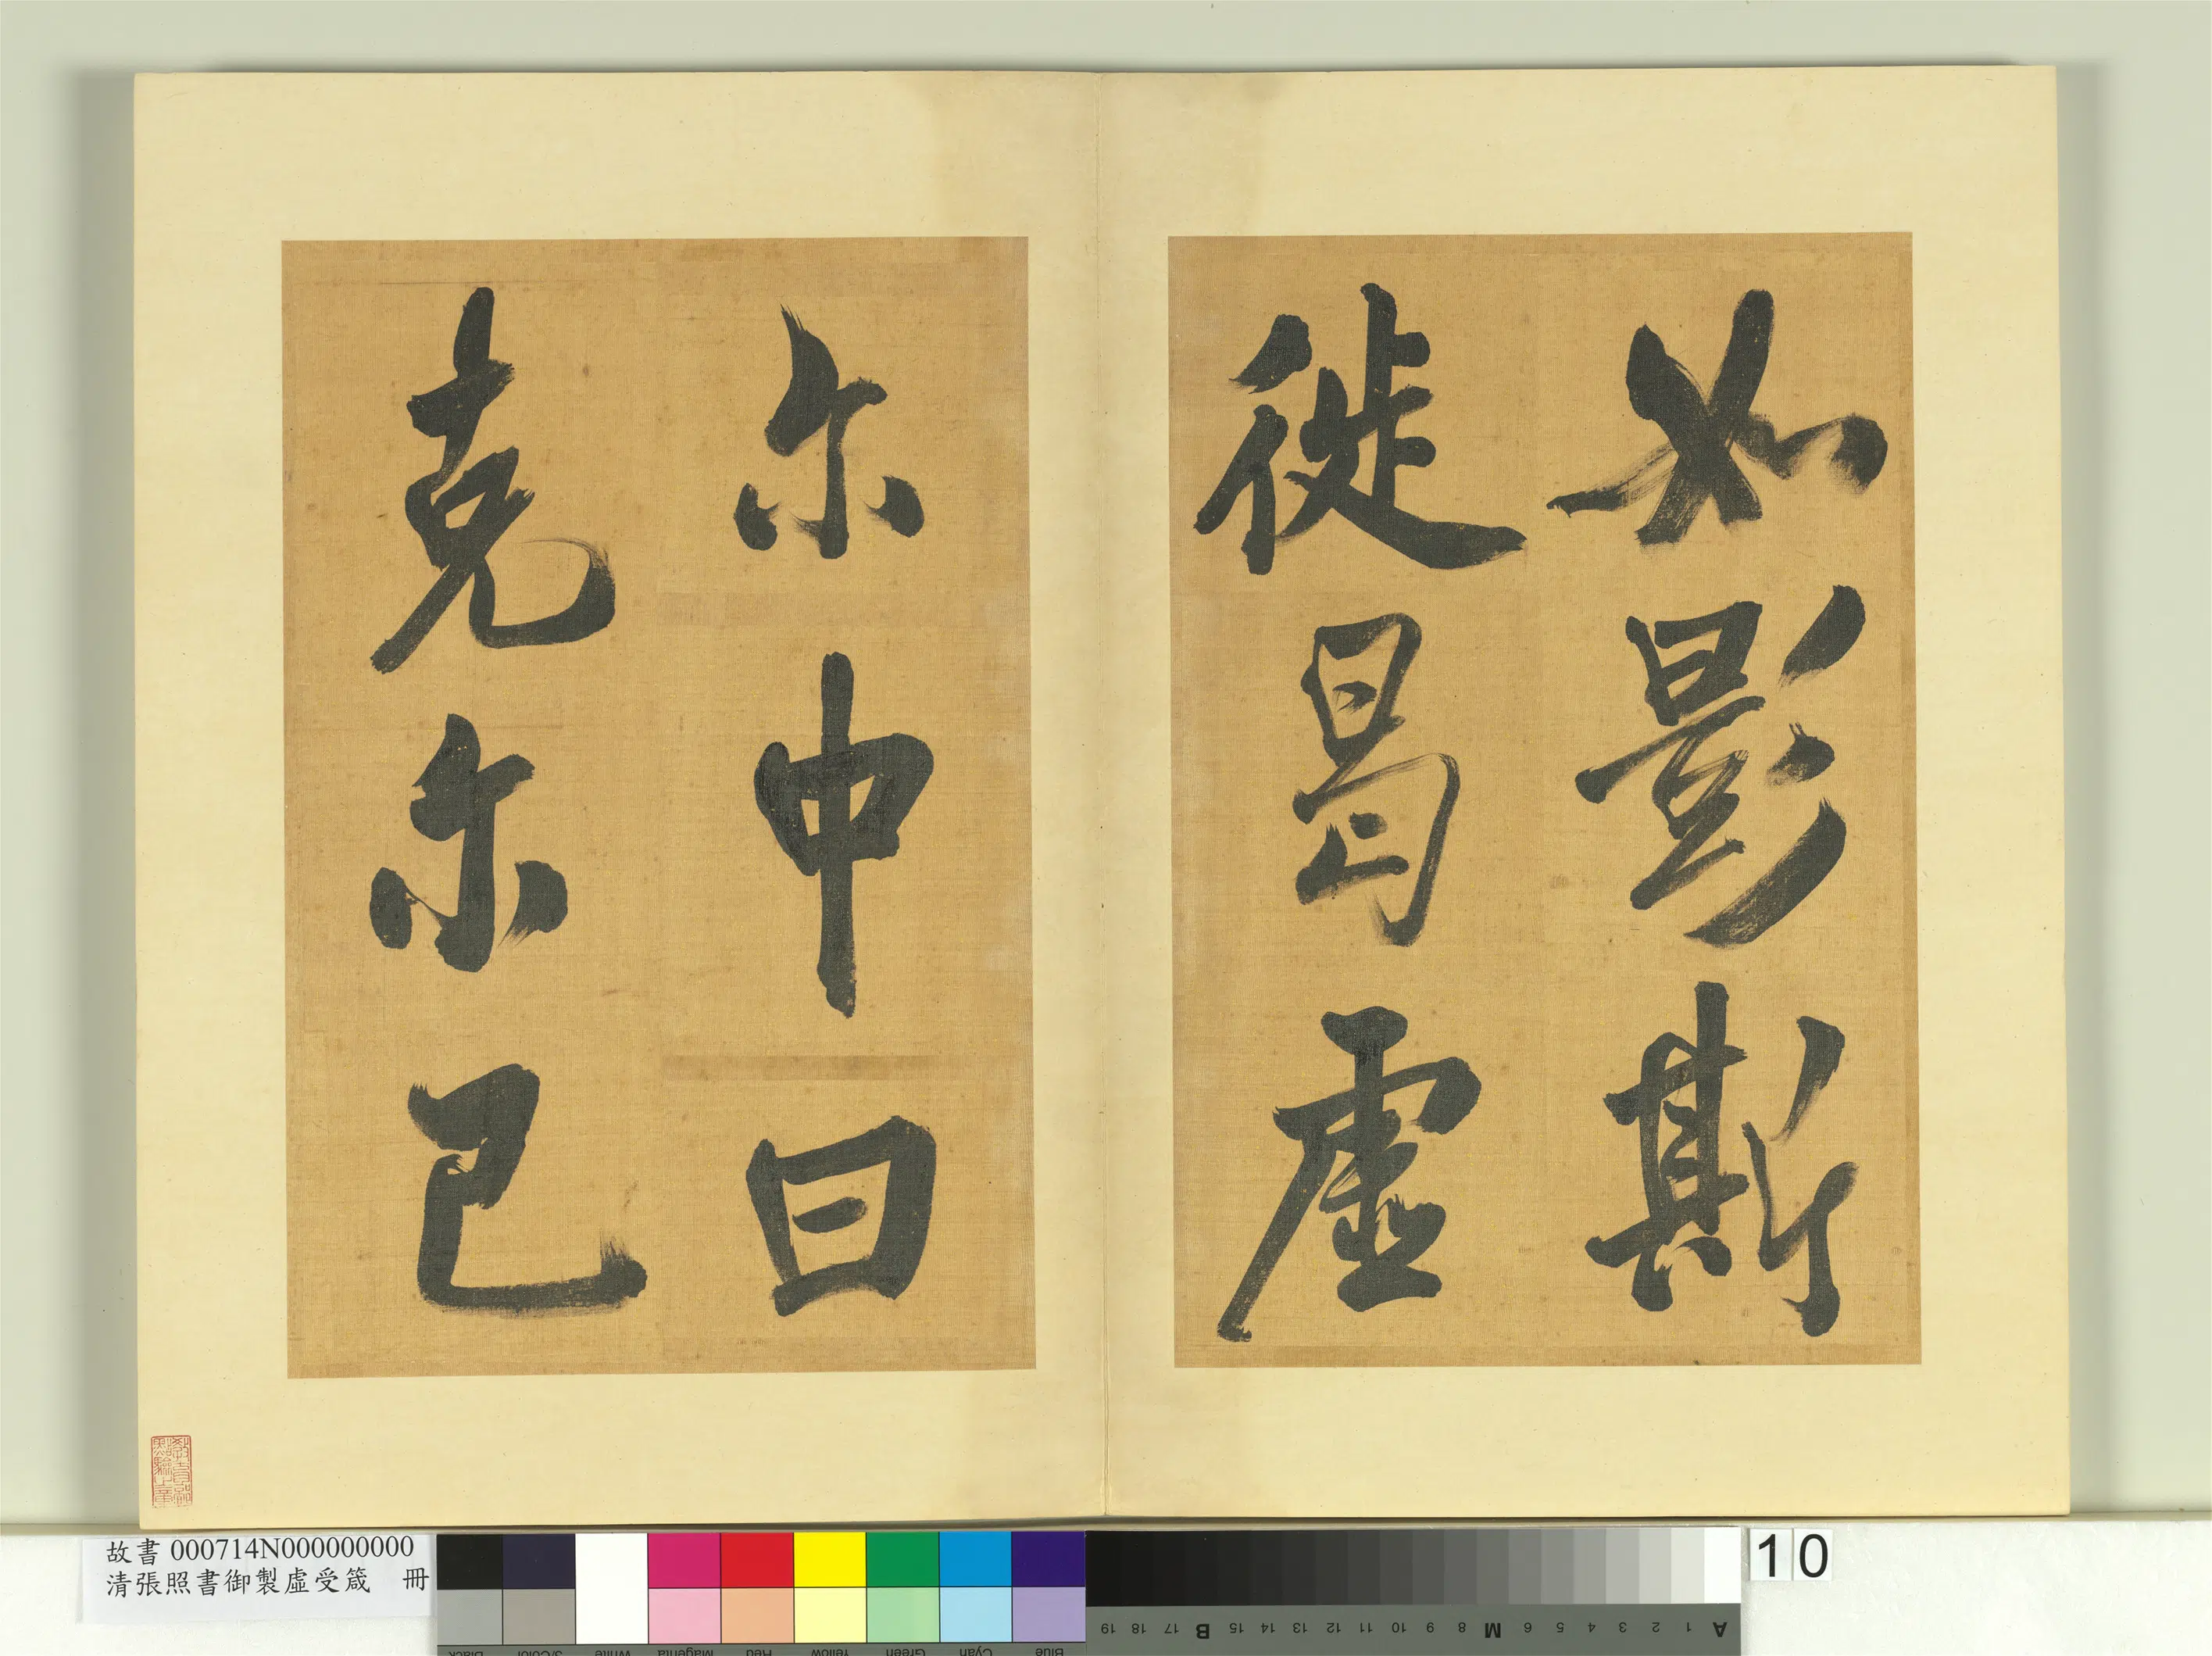 如影斯
徙曷虛
尔中曰
克尔己
故書 000714N000000000
清張照書御製虛受箴 冊
10
Black 3/Color White Magenta Red Yellow Green Cyan Blue
A 1 2 3 4 5 6 M 8 9 10 11 12 13 14 15 B 17 18 19